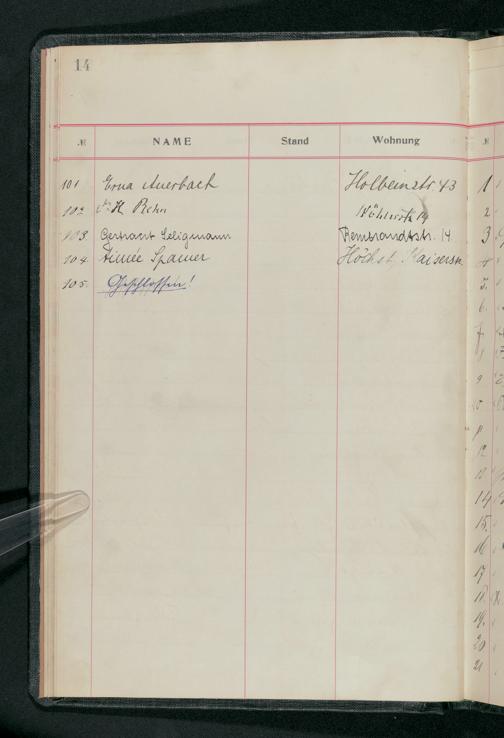 14
№ NAME Stand Wohnung №
101 Erna Auerbach Holbeinstr 43 1
102. Dr. H Rehn Wöhlerstr 14 2
103. Gertraut Seligmann Rembrandtstr. 14. 3
104. Aimée Spamer Höchst Kaiserstr 4
105. Geschlossen! 5.
6.
7
8
9
10
11
12
13
14
15.
16
17
18.
19.
20
21